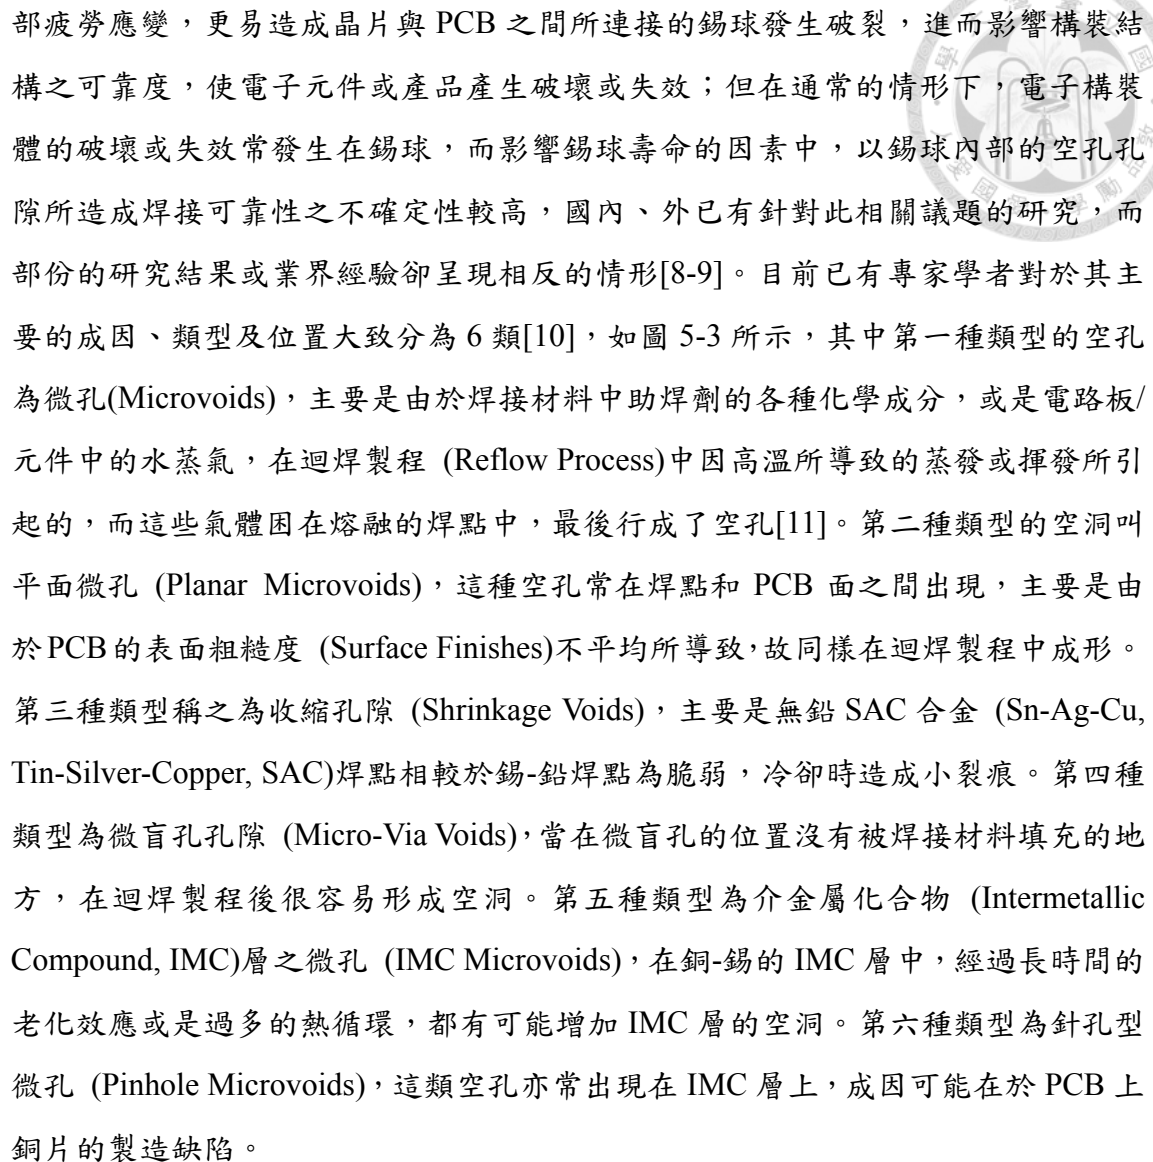 部疲勞應變，更易造成晶片與 PCB 之間所連接的錫球發生破裂，進而影響構裝結
構之可靠度，使電子元件或產品產生破壞或失效；但在通常的情形下，電子構裝
體的破壞或失效常發生在錫球，而影響錫球壽命的因素中，以錫球內部的空孔孔
隙所造成焊接可靠性之不確定性較高，國內、外已有針對此相關議題的研究，而
部份的研究結果或業界經驗卻呈現相反的情形[8-9]。目前已有專家學者對於其主
要的成因、類型及位置大致分為 6 類[10]，如圖 5-3 所示，其中第一種類型的空孔
為微孔(Microvoids)，主要是由於焊接材料中助焊劑的各種化學成分，或是電路板/
元件中的水蒸氣，在迴焊製程 (Reflow Process)中因高溫所導致的蒸發或揮發所引
起的，而這些氣體困在熔融的焊點中，最後行成了空孔[11]。第二種類型的空洞叫
平面微孔 (Planar Microvoids)，這種空孔常在焊點和 PCB 面之間出現，主要是由
於PCB的表面粗糙度 (Surface Finishes)不平均所導致，故同樣在迴焊製程中成形。
第三種類型稱之為收縮孔隙 (Shrinkage Voids)，主要是無鉛 SAC 合金 (Sn-Ag-Cu,
Tin-Silver-Copper, SAC)焊點相較於錫-鉛焊點為脆弱，冷卻時造成小裂痕。第四種
類型為微盲孔孔隙 (Micro-Via Voids)，當在微盲孔的位置沒有被焊接材料填充的地
方，在迴焊製程後很容易形成空洞。第五種類型為介金屬化合物 (Intermetallic
Compound, IMC)層之微孔 (IMC Microvoids)，在銅-錫的 IMC 層中，經過長時間的
老化效應或是過多的熱循環，都有可能增加 IMC 層的空洞。第六種類型為針孔型
微孔 (Pinhole Microvoids)，這類空孔亦常出現在 IMC 層上，成因可能在於 PCB 上
銅片的製造缺陷。